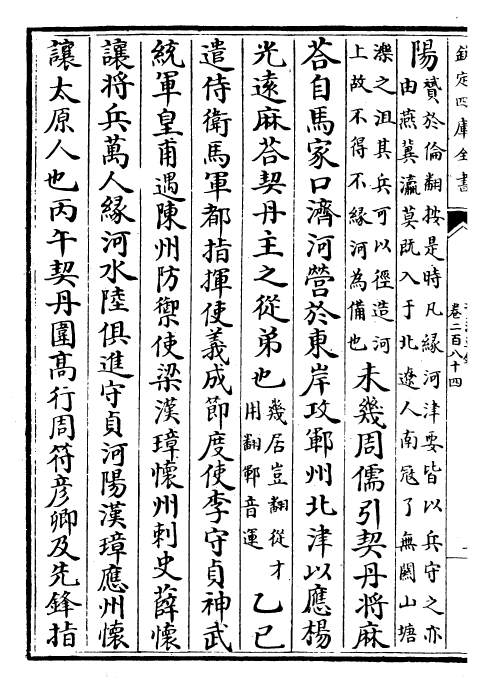 欽定四庫全書
卷二百八十四
陽
贇於倫翻按是時凡緣河津要皆以兵守之亦
由燕冀瀛莫既入于北遼人南宼了無闗山塘
濼之沮其兵可以徑造河
上故不得不緣河為備也
未幾周儒引契丹將麻
荅自馬家口濟河營於東岸攻鄆州北津以應楊
光遠麻荅契丹主之從弟也
幾居豈翻從才
用翻鄆音運
乙巳
遣侍衛馬軍都指揮使義成節度使李守貞神武
統軍皇甫遇陳州防禦使梁漢璋懷州刺史薛懷
讓將兵萬人緣河水陸俱進守貞河陽漢璋應州懷
讓太原人也丙午契丹圍髙行周符彦卿及先鋒指